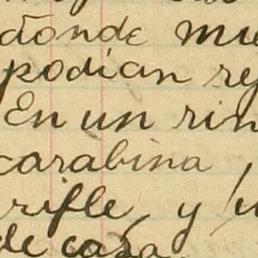 donde mue
podian re
En un rin
carabina,
rifle, y u
de casa.